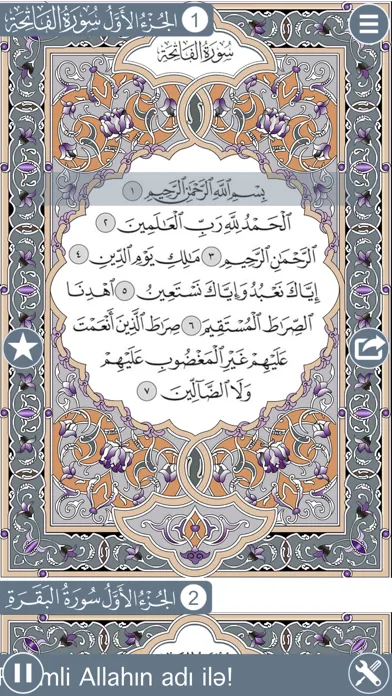 الجزء الأول سورة الفاتحة 1
سُورَةُ الفَاتِحَة
بِسْمِ اللَّهِ الرَّحْمَٰنِ الرَّحِيمِ ١
الْحَمْدُ لِلَّهِ رَبِّ الْعَالَمِينَ ٢
الرَّحْمَٰنِ الرَّحِيمِ ٣ مَالِكِ يَوْمِ الدِّينِ ٤
إِيَّاكَ نَعْبُدُ وَإِيَّاكَ نَسْتَعِينُ ٥ اهْدِنَا
الصِّرَاطَ الْمُسْتَقِيمَ ٦ صِرَاطَ الَّذِينَ أَنْعَمْتَ
عَلَيْهِمْ غَيْرِ الْمَغْضُوبِ عَلَيْهِمْ
وَلَا الضَّالِّينَ ٧
الجُزءُ الأَوَّلُ سُورَةُ البَقَرَة 2
mli Allahın adı ilə!